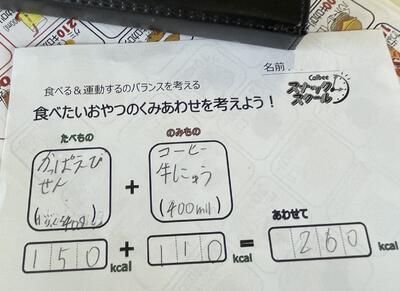 名前
食べる&運動するのバランスを考える
Calbee
スナックスクール
食べたいおやつのくみあわせを考えよう!
たべもの
のみもの
かっぱえび
せん
+
コーヒー
牛にゅう
(400ml)
あわせて
150 kcal + 110 kcal = 260 kcal